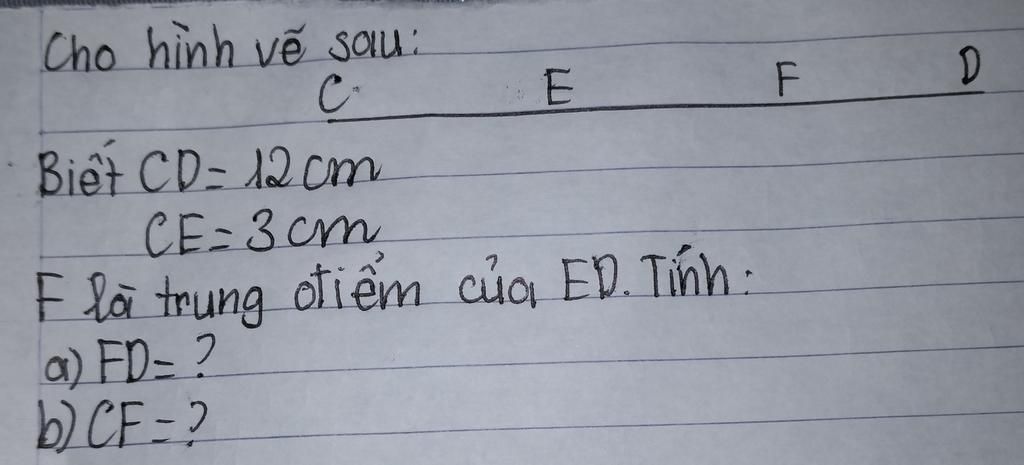 Cho hình vẽ sau:
C E F D
Biết CD = 12 cm
CE = 3 cm
F là trung điểm của ED. Tính:
a) FD = ?
b) CF = ?